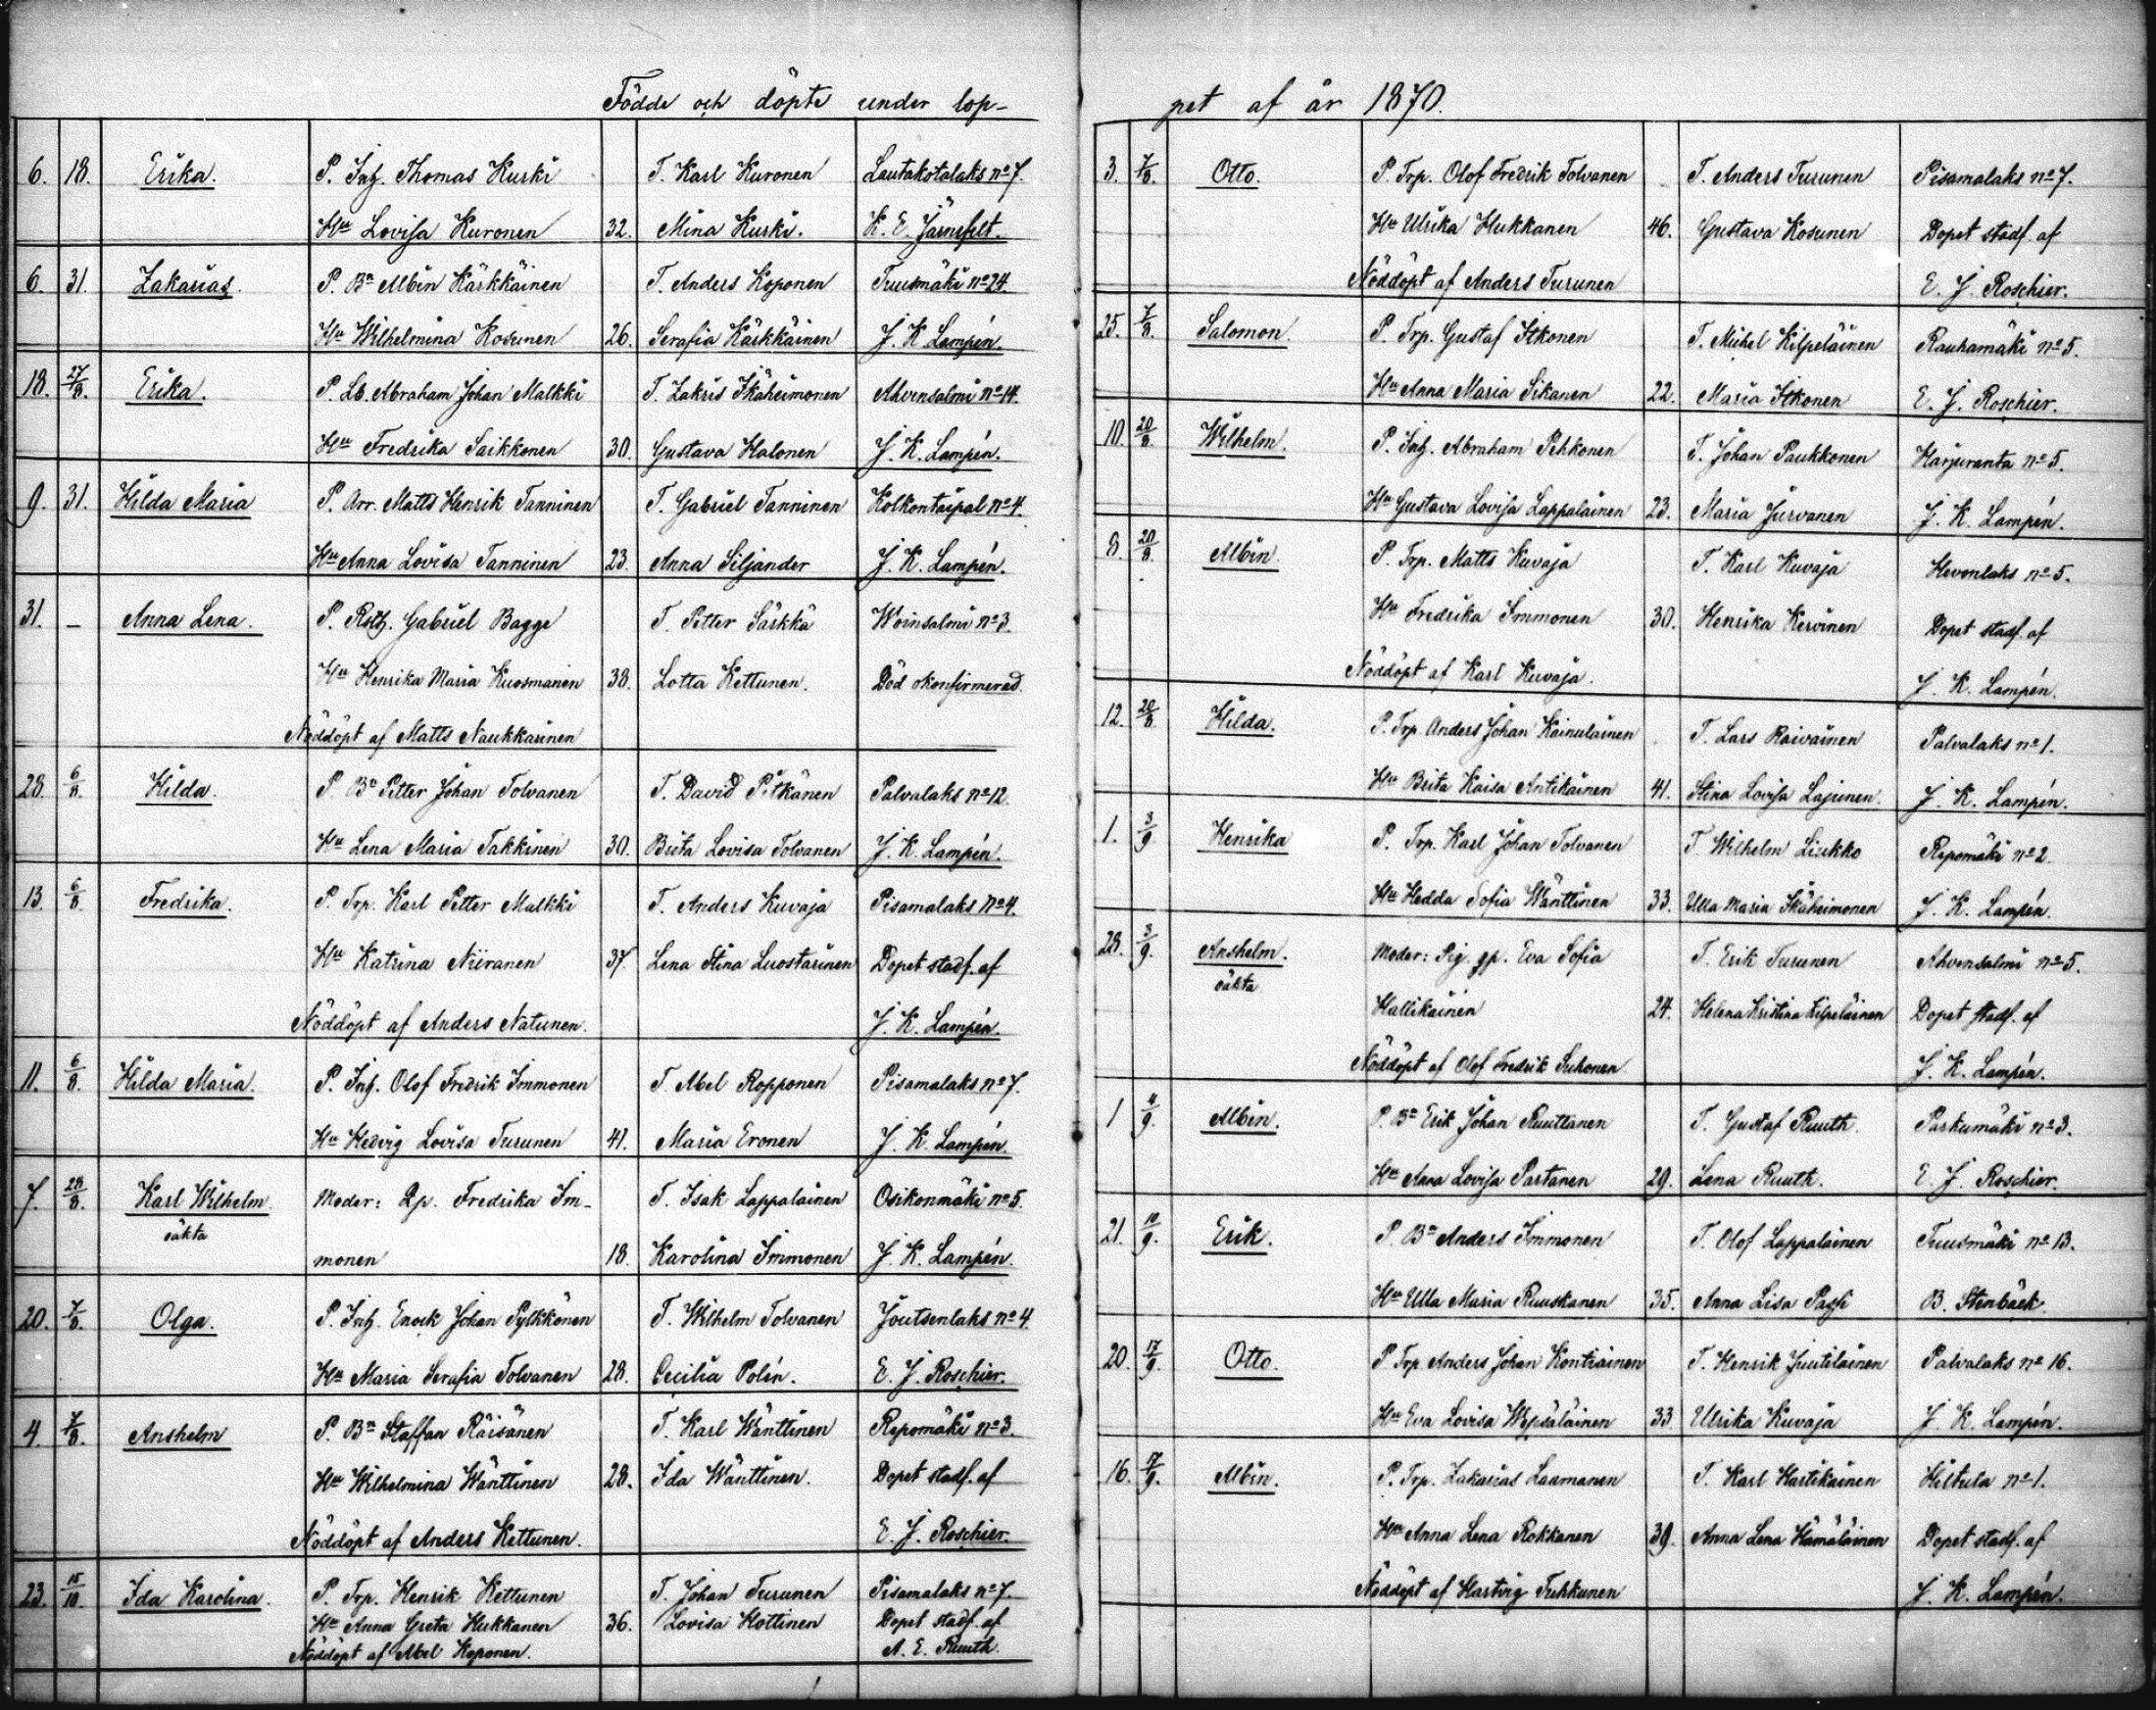 Födde och döpte under lop-
6. 18. Erika. P. Inh. Thomas Kurki T. Karl Kuronen Lautakotalaks no 7.
Hu Lovisa Kuronen 32. Mina Kurki. K. E. Järnefelt.
6. 31. Zakarias. P. Bn Albin Kärkkäinen T. Anders Koponen Tuusmäki no 24.
Hu Wilhelmina Kosunen 26. Serafia Kärkkäinen J. K. Lampén.
18. 27/8. Erika. P. Lb. Abraham Johan Malkki T. Zakris Ikäheimonen Ahvensalmi no 14.
Hu Fredrika Saikkonen 30. Gustava Halonen J. K. Lampén.
9. 31. Hilda Maria P. Arr. Matts Henrik Tanninen T. Gabriel Tanninen Kolkontaipal no 4.
Hu Anna Lovisa Tanninen 23. Anna Siljander J. K. Lampén.
31. — Anna Lena. P. Roth. Gabriel Bagge T. Petter Särkkä Woinsalmi no 3.
Hu Henrika Maria Kuosmanen 38. Lotta Kettunen. Död okonfirmerad.
Nöddöpt af Matts Naukkarinen
28. 6/8. Hilda. P Bn Petter Johan Tolvanen T. David Pitkänen Palvalaks no 12.
Hu Lena Maria Takkinen 30. Brita Lovisa Tolvanen J. K. Lampén.
13. 6/8. Fredrika. P. Trp. Karl Petter Malkki T. Anders Kuvaja Pisamalaks No 4.
Hu Katrina Niiranen 37. Lena Stina Luostarinen Dopet stadf. af
Nöddöpt af Anders Natunen. J. K. Lampén.
11. 6/8. Hilda Maria. P. Inh. Olof Fredrik Immonen T. Abel Ropponen Pisamalaks no 7.
Hu Hedvig Lovisa Turunen 41. Maria Eronen J. K. Lampén.
7. 28/8. Karl Wilhelm. Moder: Qp. Fredrika Im- T. Isak Lappalainen Osikonmäki no 5.
oäkta monen 18. Karolina Immonen J. K. Lampén.
20. 7/8. Olga. P. Inh. Enock Johan Pylkkönen T. Wilhelm Tolvanen Joutsenlaks no 4.
Hu Maria Serafia Tolvanen 28. Cecilia Polén. E. J. Roschier.
4. 7/8. Anshelm P. Bn Staffan Räisänen T. Karl Wänttinen Repomäki no 3.
Hu Wilhelmina Wänttinen 28. Ida Wänttinen. Dopet stadf. af
Nöddöpt af Anders Kettunen. E. J. Roschier.
23. 15/10. Ida Karolina. P. Trp. Henrik Kettunen T. Johan Turunen Pisamalaks no 7.
Hu Anna Greta Hukkanen 36. Lovisa Hottinen Dopet stadf. af
Nöddöpt af Abel Koponen. A. E. Ruuth.
pet af år 1870.
3. 7/8. Otto. P. Trp. Olof Fredrik Tolvanen T. Anders Turunen Pisamalaks no 7.
Hu Ulrika Hukkanen 46. Gustava Kosunen Dopet stadf. af
Nöddöpt af Anders Turunen E. J. Roschier.
25. 7/8. Salomon. P. Trp. Gustaf Itkonen T. Mikel Kilpeläinen Rauhamäki no 5.
Hu Anna Maria Sikanen 22. Maria Itkonen E. J. Roschier.
10. 20/8. Wilhelm. P. Inh. Abraham Pehkonen T. Johan Paukkonen Harjuranta no 5.
Hu Gustava Lovisa Lappalainen 23. Maria Jurvanen J. K. Lampén.
8. 20/8. Albin. P. Trp. Matts Kuvaja T. Karl Kuvaja Hevonlaks no 5.
Hu Fredrika Immonen 30. Henrika Kervinen Dopet stadf. af
Nöddöpt af Karl Kuvaja. J. K. Lampén.
12. 20/8. Hilda. P. Trp. Anders Johan Kainulainen T. Lars Roivainen Palvalaks no 1.
Hu Brita Kaisa Antikainen 41. Stina Lovisa Lajunen. J. K. Lampén.
1. 3/9. Henrika P. Trp. Karl Johan Tolvanen T Wilhelm Liukko Repomäki no 2.
Hu Hedda Sofia Wänttinen 33. Ulla Maria Ikäheimonen J. K. Lampén.
28. 3/9. Anshelm. Moder: Pig. qp. Eva Sofia T. Erik Turunen Ahvensalmi no 5.
oäkta Hallikäinen 24. Helena Kristina Kilpeläinen Dopet stadf. af
Nöddöpt af Olof Fredrik Suhonen J. K. Lampén.
1 4/9. Albin. P. Bn Erik Johan Ruuttanen T. Gustaf Ruuth. Parkumäki no 3.
Hu Anna Lovisa Partanen 29. Lena Ruuth. E. J. Roschier.
21. 10/9. Erik. P. Bn Anders Immonen T. Olof Lappalainen Tuusmäki no 13.
Hu Ulla Maria Ruuskanen 35. Anna Lisa Passi B. Stenbäck.
20. 17/9. Otto. P Trp Anders Johan Kontiainen T. Henrik Juutilainen Palvalaks no 16.
Hu Eva Lovisa Wepsäläinen 33. Ulrika Kuvaja J. K. Lampén.
16. 17/9. Albin. P. Trp. Zakarias Laamanen T. Karl Hartikainen Hiltula no 1.
Hu Anna Lena Rokkanen 39. Anna Lena Hämäläinen Dopet stadf. af
Nöddöpt af Hartvig Tuhkunen J. K. Lampén.